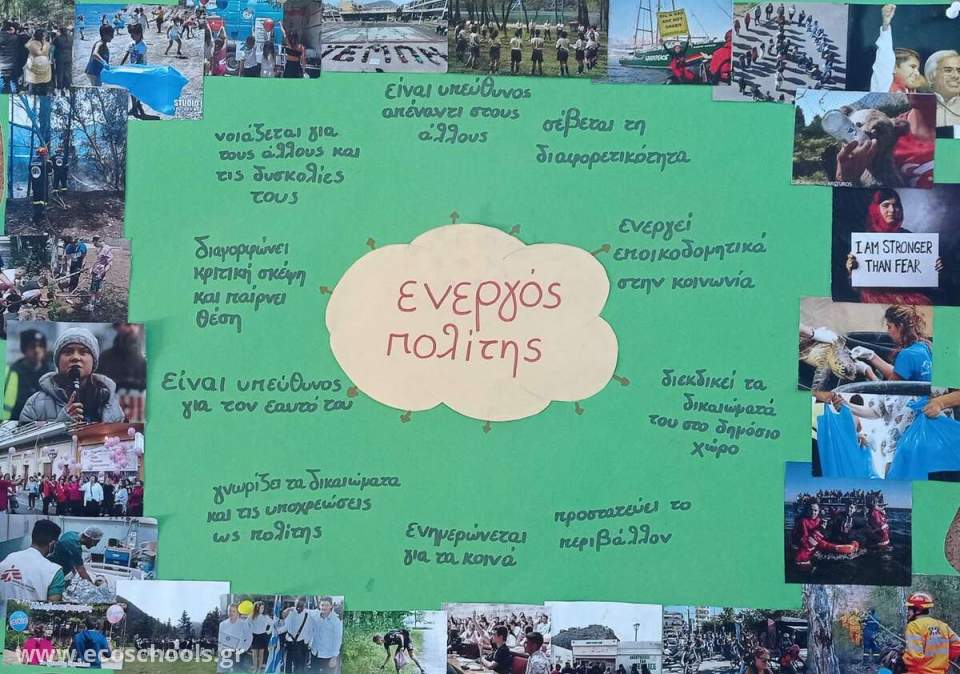 είναι υπεύθυνος
απέναντι στους
άλλους
νοιάζεται για
τους άλλους και
τις δυσκολίες
τους
σέβεται τη
διαφορετικότητα
ενεργεί
εποικοδομητικά
στην κοινωνία
διαμορφώνει
κριτική σκέψη
και παίρνει
θέση
ενεργός
πολίτης
Είναι υπεύθυνος
για τον εαυτό του
διεκδικεί τα
δικαιώματά
του στο δημόσιο
χώρο
γνωρίζει τα δικαιώματα
και τις υποχρεώσεις
ως πολίτης
ενημερώνεται
για τα κοινά
προστατεύει το
περιβάλλον
I AM STRONGER
THAN FEAR
GREENPEACE
STUDIO
www.ecoschools.gr